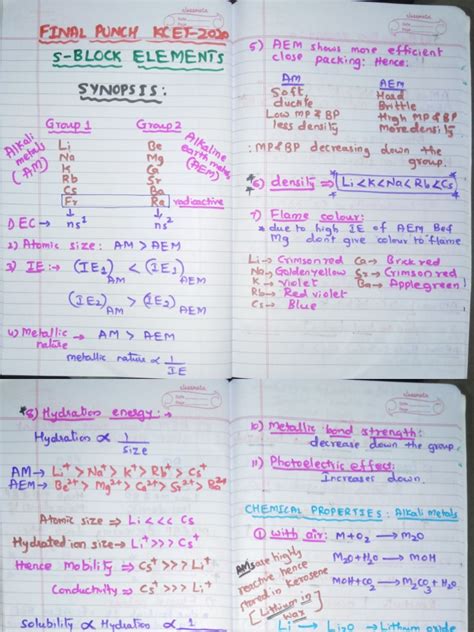 FINAL PUNCH KCET-2020
S-BLOCK ELEMENTS
SYNOPSIS:
Group 1 Group 2
Alkali metals (AM)
Li Be
Na Mg
K Ca
Rb Sr
Cs Ba
Fr Ra radioactive
Alkaline earth metals (AEM)
1) EC → ns¹ ns²
2) Atomic size: AM > AEM
3) IE :→ (IE₁)AM < (IE₁)AEM
(IE₂)AM > (IE₂)AEM
4) Metallic nature → AM > AEM
metallic nature ∝ 1/IE
classmate
Date
Page
5) AEM shows more efficient
close packing: Hence:
AM AEM
Soft, Hard
ductile Brittle
Low MP & BP High MP & BP
less density More density
: MP & BP decreasing down the
group.
*6) density ⇒ Li < K < Na < Rb < Cs
7) Flame colour:
* due to high IE of AEM Be &
Mg don't give colour to flame
Li → Crimson red Ca → Brick red
Na → Golden yellow Sr → Crimson red
K → Violet Ba → Apple green
Rb → Red violet
Cs → Blue
classmate
Date
Page
*8) Hydration energy: →
Hydration ∝ 1/size
AM → Li⁺ > Na⁺ > K⁺ > Rb⁺ > Cs⁺
AEM → Be²⁺ > Mg²⁺ > Ca²⁺ > Sr²⁺ > Ba²⁺
Atomic size ⇒ Li <<< Cs
Hydrated ion size ⇒ Li⁺ >>> Cs⁺
Hence Mobility ⇒ Cs⁺ >>> Li⁺
Conductivity ⇒ Cs⁺ >>> Li⁺
Solubility ∝ Hydration ∝ 1
classmate
Date
Page
10) Metallic bond strength:
decrease down the group
11) Photoelectric effect:
Increases down.
CHEMICAL PROPERTIES: Alkali metals
① with air: M + O₂ → M₂O
M₂O + H₂O → MOH
MOH + CO₂ → M₂CO₃ + H₂O
AMs are highly
reactive hence
stored in kerosene
[Lithium in
wax]
Li → Li₂O → Lithium oxide